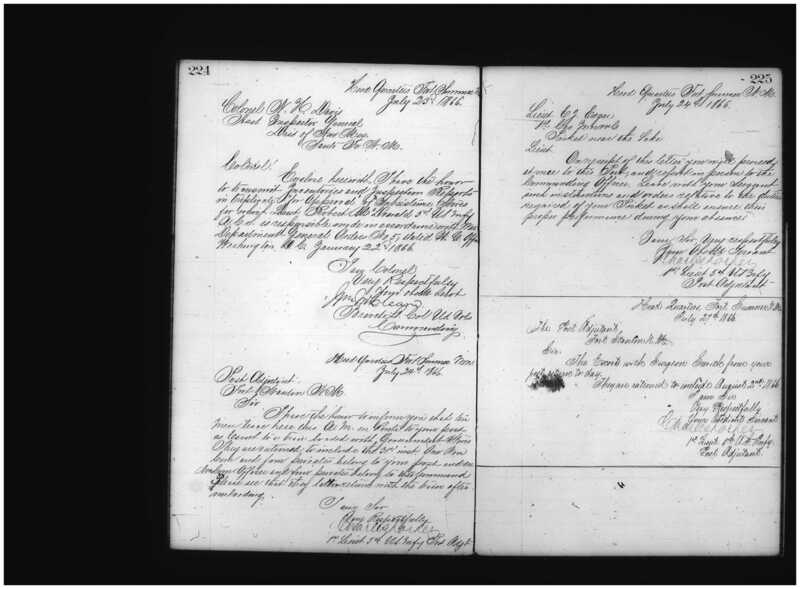 224
Head Quarters Fort Sumner
July 23rd 1866.
Colonel N. H. Davis
Asst Inspector General
Dist of New Mex.
Santa Fe N. M.
Colonel!
Enclosed herewith I have the honor
to transmit Inventories and Inspection Reports
in triplicate for Disposal of Subsistence Stores
for which Lieut Robert McDonald 5th US Infy
A.C.S. is responsible made in accordance with War
Department General Orders No 5, dated A. G. Office
Washington D. C. January 22nd 1866.
I am Colonel
Very Respectfully
Your obdt Servt
Commanding
Head Quarters Fort Sumner
July 24th 1866.
Post Adjutant
Fort Stanton N. M.
Sir
I have the honor to inform you that ten
men leave here this A.M. en route to your post
as Escort to a train loaded with Government Stores
They are rationed to include the 30th inst. One
and four privates belong to your post and
and four privates belong to this command
Please see that they return with the train after
unloading.
I am Sir
Very Respectfully
1st Lieut 5th US Infy Post Adjt
225
Head Quarters Fort Sumner N. M.
July 24th 1866.
Lieut
1st
Picket near the Lake
Lieut
On receipt of this letter you will proceed
at once to this Post, and report in person to the
Commanding Officer. Leave with your Sergeant
such instructions and orders relative to the duties
required of your Picket as shall ensure their
proper performance during your absence.
I am Sir Very respectfully
Your Obedt Servant
1st Lieut 5th US Infy
Post Adjutant
Head Quarters Fort Sumner N. M.
July 27th 1866
The Post Adjutant
Fort Stanton N. M.
Sir
The Escort with Surgeon from your
post return to day.
They are rationed to include August 2nd, 1866
I am Sir
Very Respectfully
Your Obedient Servant
1st Lieut 5th U.S. Infy
Post Adjutant.